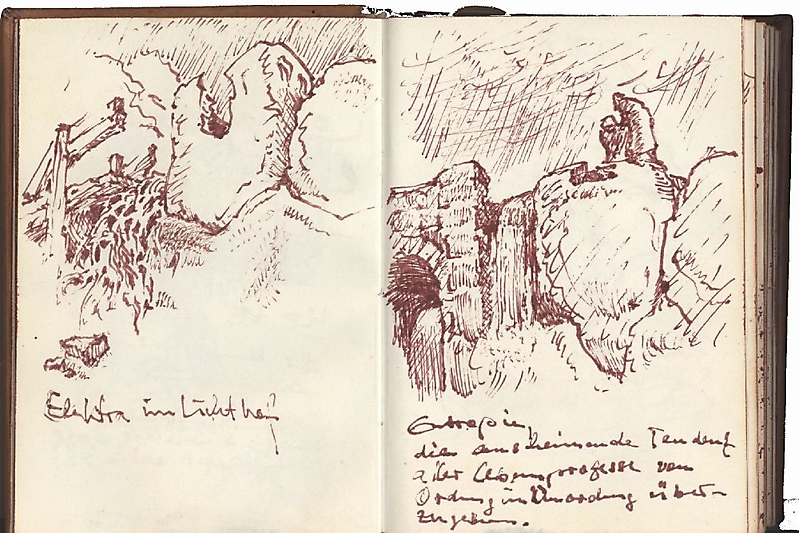 Elektra im
Entropie,
die anscheinende Tendenz
aller Lebensprozesse von
Ordnung in Unordnung über-
zugehen.